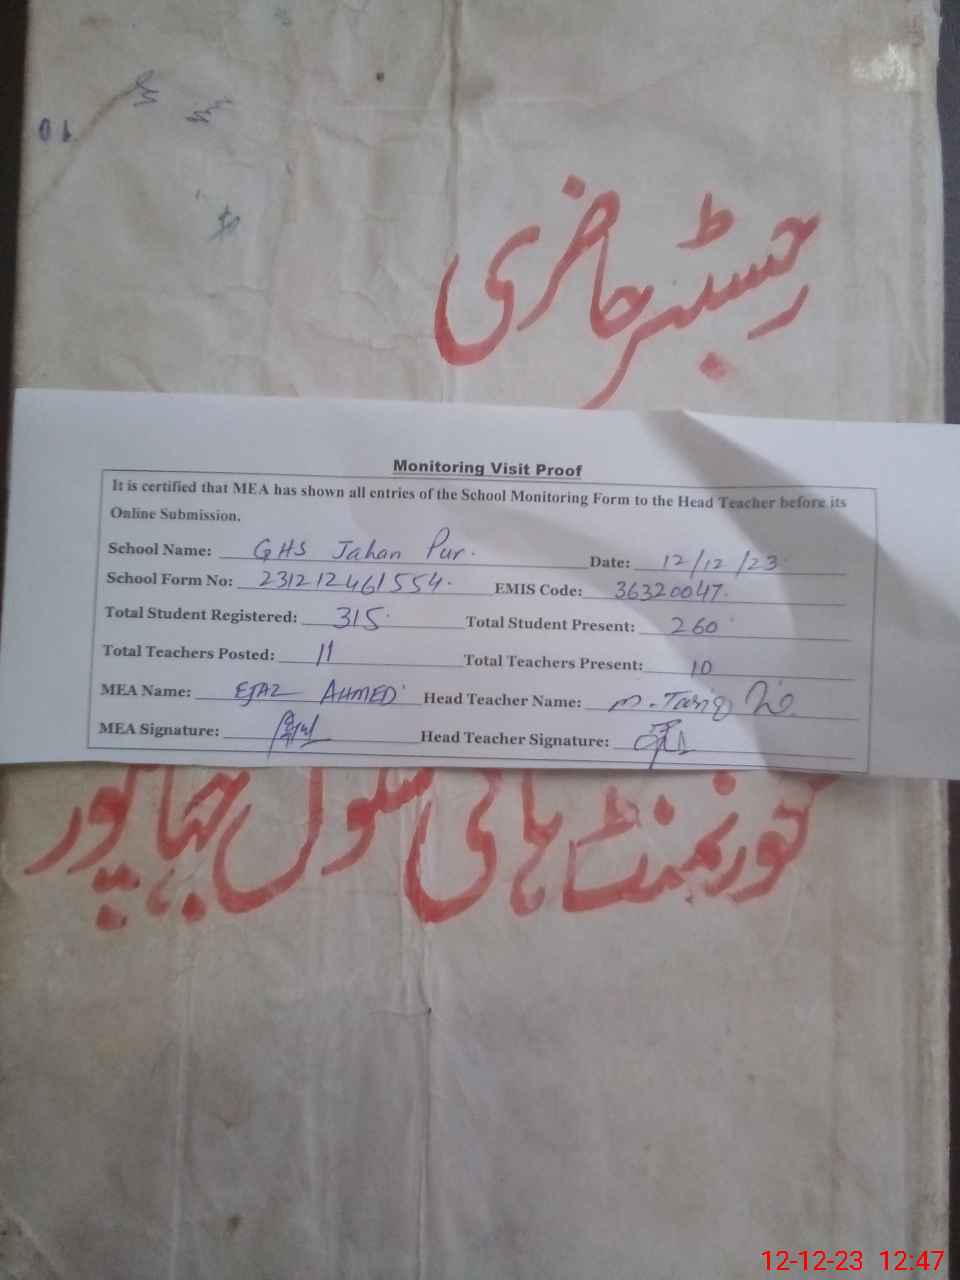 10
رجسٹر حاضری
Monitoring Visit Proof
It is certified that MEA has shown all entries of the School Monitoring Form to the Head Teacher before its
Online Submission.
School Name: GHS Jahan Pur. Date: 12/12/23
School Form No: 231212461554. EMIS Code: 36320047.
Total Student Registered: 315 Total Student Present: 260
Total Teachers Posted: 11 Total Teachers Present: 10
MEA Name: EJAZ AHMED Head Teacher Name: M. Tariq
MEA Signature: Head Teacher Signature:
گورنمنٹ ہائی سکول جہانپور
12-12-23 12:47